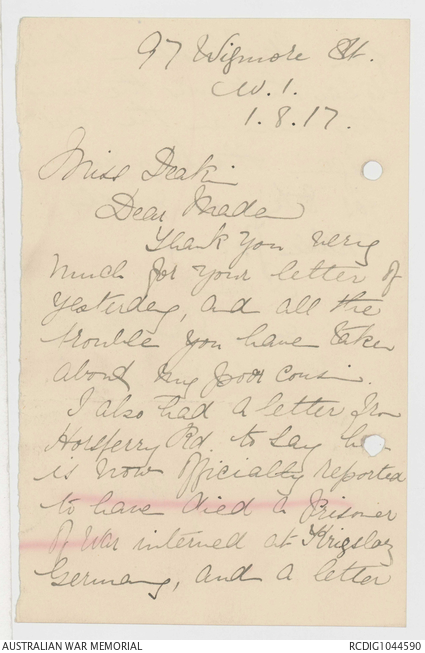 97 Wigmore St.
W. 1.
1. 8. 17.
Miss Deakin
Dear Madam
Thank you very
much for your letter of
yesterday, and all the
trouble you have taken
about my poor cousin.
I also had a letter from
Horseferry Rd to say he
is now officially reported
to have died a Prisoner
of War interned at
Germany, and a letter
AUSTRALIAN WAR MEMORIAL
RCDIG1044590